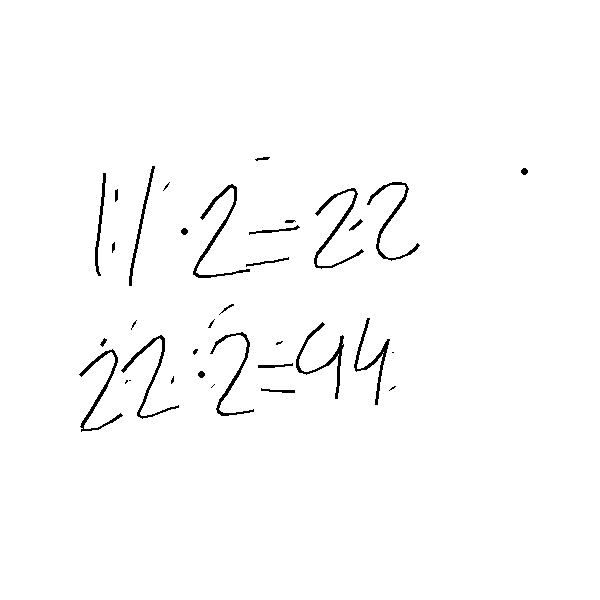 11 · 2 = 22
22 · 2 = 44